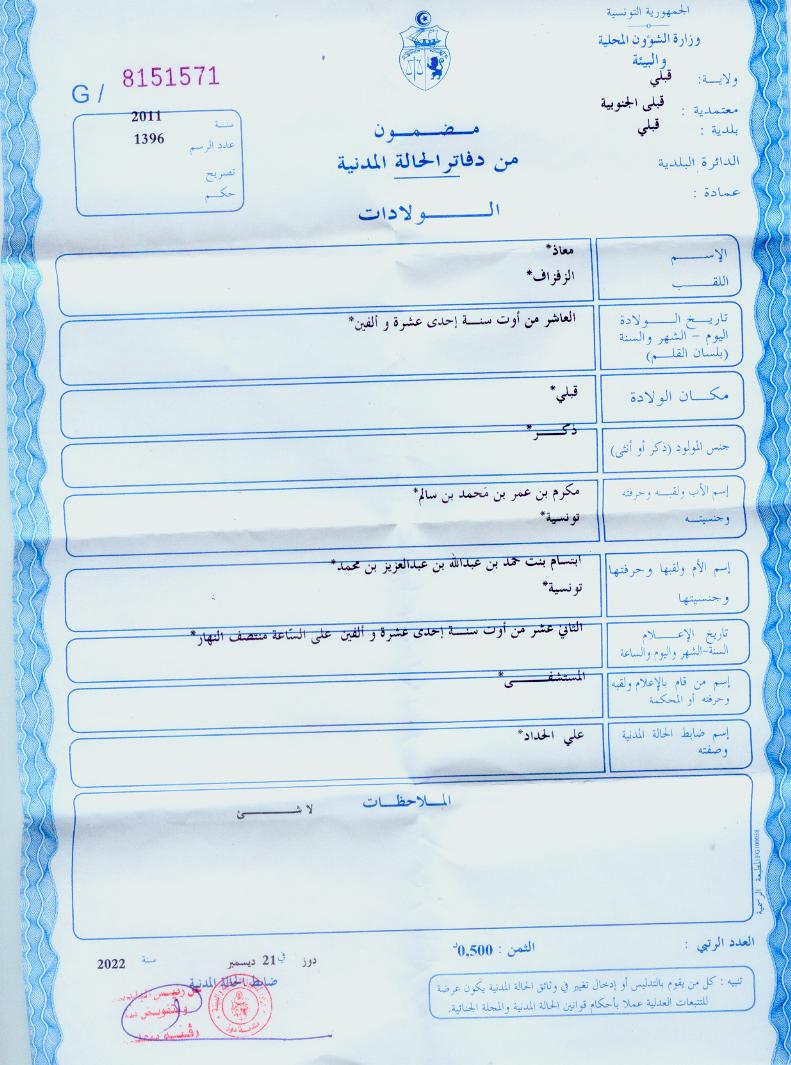 الجمهورية التونسية
وزارة الشؤون المحلية
والبيئة
ولايــة: قبلي
معتمدية : قبلى الجنوبية
بلدية : قبلي
الدائرة البلدية
عمادة :
G / 8151571
سنة 2011
عدد الرسم 1396
تصريح
حكــم
مـضـمــون
من دفاتر الحالة المدنية
الــــولادات
الإســــم معاذ*
اللقــب الزفزاف*
تاريـخ الـــولادة
اليوم – الشهر والسنة
(بلسان القلــم)
العاشر من أوت سنــة إحدى عشرة و ألفين*
مكــان الولادة قبلي*
جنس المولود (ذكر أو أنثى) ذكـــر*
إسم الأب ولقبـه وحرفته مكرم بن عمر بن محمد بن سالم*
وجنسيتــه تونسية*
إسم الأم ولقبها وحرفتها ابتسام بنت حمد بن عبدالله بن عبدالعزيز بن محمد*
وجنسيتها تونسية*
تاريخ الإعــلام
السنة-الشهر واليوم والساعة
الثاني عشر من أوت سنــة إحدى عشرة و ألفين على الساعة منتصف النهار*
إسم من قام بالإعلام ولقبه
وحرفته أو المحكمة
المستشفــــى*
إسم ضابط الحالة المدنية
وصفته
علي الحداد*
المـلاحظـات
لا شــــئ
العدد الرتبي :
الثمن : 0,500د
دوز في 21 ديسمبر سنة 2022
ضابط الحالة المدنية
تنبيه : كل من يقوم بالتدليس أو إدخال تغيير في وثائق الحالة المدنية يكون عرضة
للتتبعات العدلية عملا بأحكام قوانين الحالة المدنية والمجلة الجنائية.